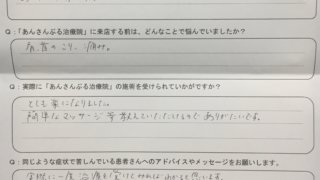 Q：「あんさんぶる治療院」に来店する前は、どんなことで悩んでいましたか？
肩、首のこり、痛み。
Q：実際に「あんさんぶる治療院」の施術を受けられていかがですか？
とても楽になりました。
簡単なマッサージ等 教えていただけるので ありがたいです。
Q：同じような症状で苦しんでいる患者さんへのアドバイスやメッセージをお願いします。
実際に一度 治療を受けてみれば わかると思います。